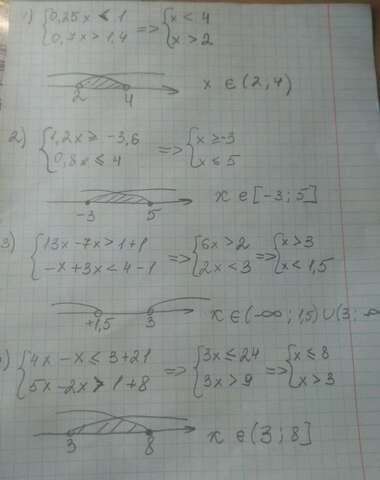 1) {0,25x < 1 {0,7x > 1,4 => {x < 4 {x > 2
2 4 x ∈ (2, 4)
2) {1,2x ≥ -3,6 {0,8x ≤ 4 => {x ≥ -3 {x ≤ 5
-3 5 x ∈ [-3; 5]
3) {13x - 7x > 1 + 1 {-x + 3x < 4 - 1 => {6x > 2 {2x < 3 => {x > 3 {x < 1,5
+1,5 3 x ∈ (-∞; 1,5) ∪ (3;
) {4x - x ≤ 3 + 21 {5x - 2x > 1 + 8 => {3x ≤ 24 {3x > 9 => {x ≤ 8 {x > 3
3 8 x ∈ (3; 8]